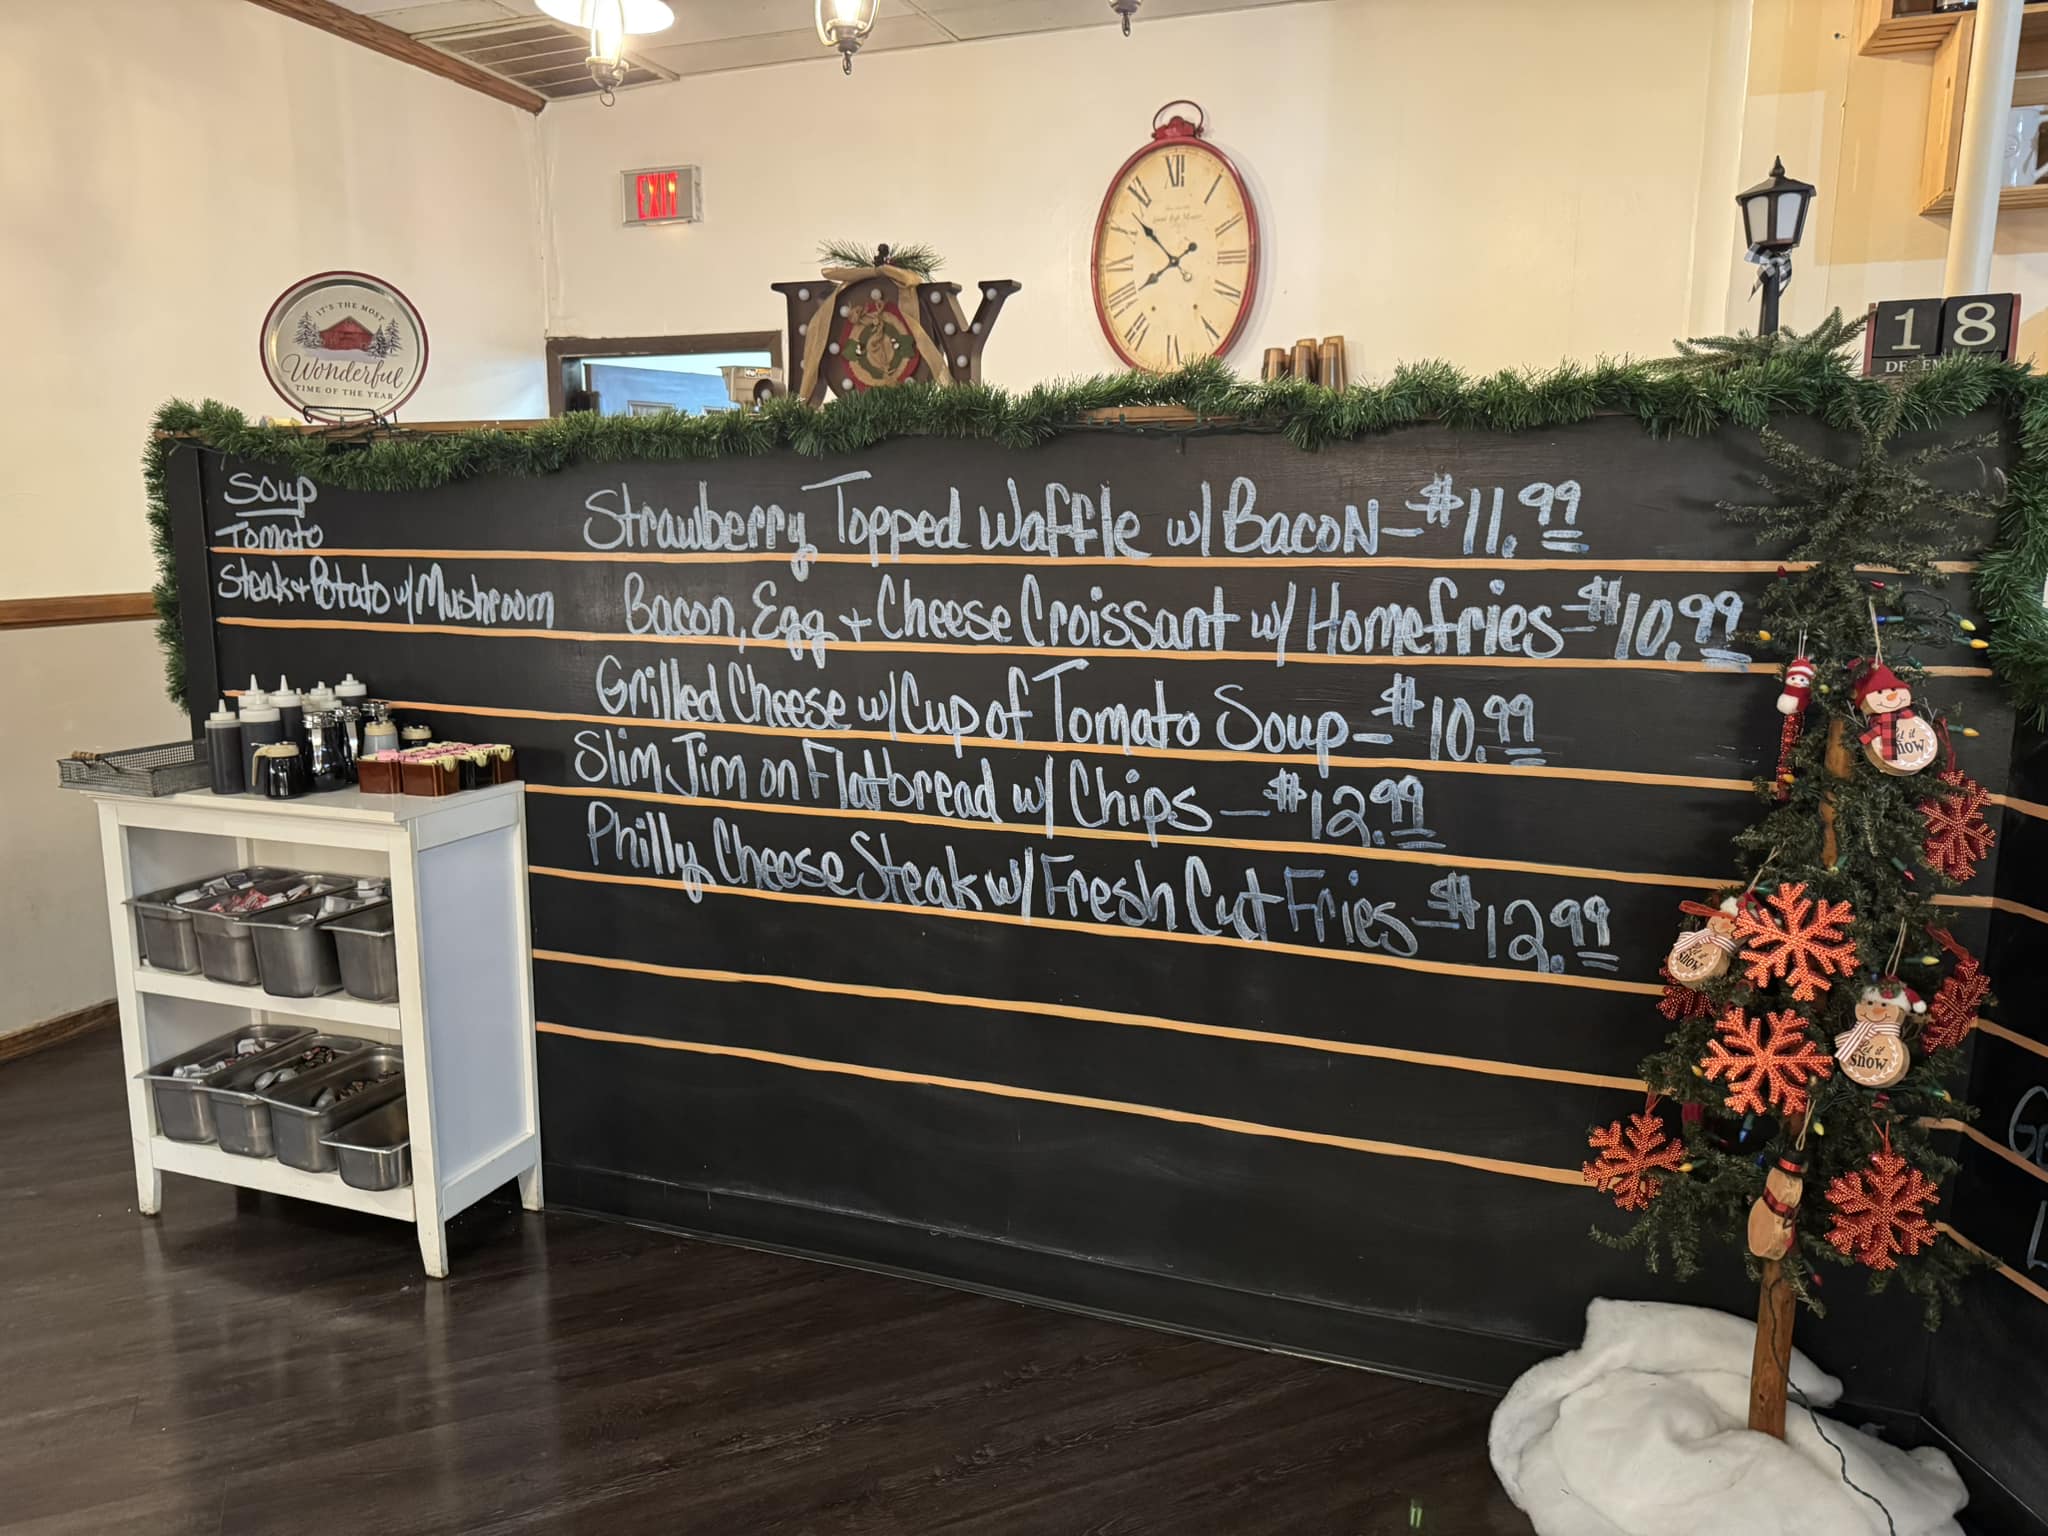 EXIT
IT'S THE MOST
Wonderful
TIME OF THE YEAR
XII
18
Soup
Tomato
Steak + Potato w/ Mushroom
Strawberry Topped Waffle w/ Bacon - $11.99
Bacon, Egg + Cheese Croissant w/ Homefries - $10.99
Grilled Cheese w/ Cup of Tomato Soup - $10.99
Slim Jim on Flatbread w/ Chips - $12.99
Philly Cheese Steak w/ Fresh Cut Fries - $12.99
let it
snow
snow
let it
snow